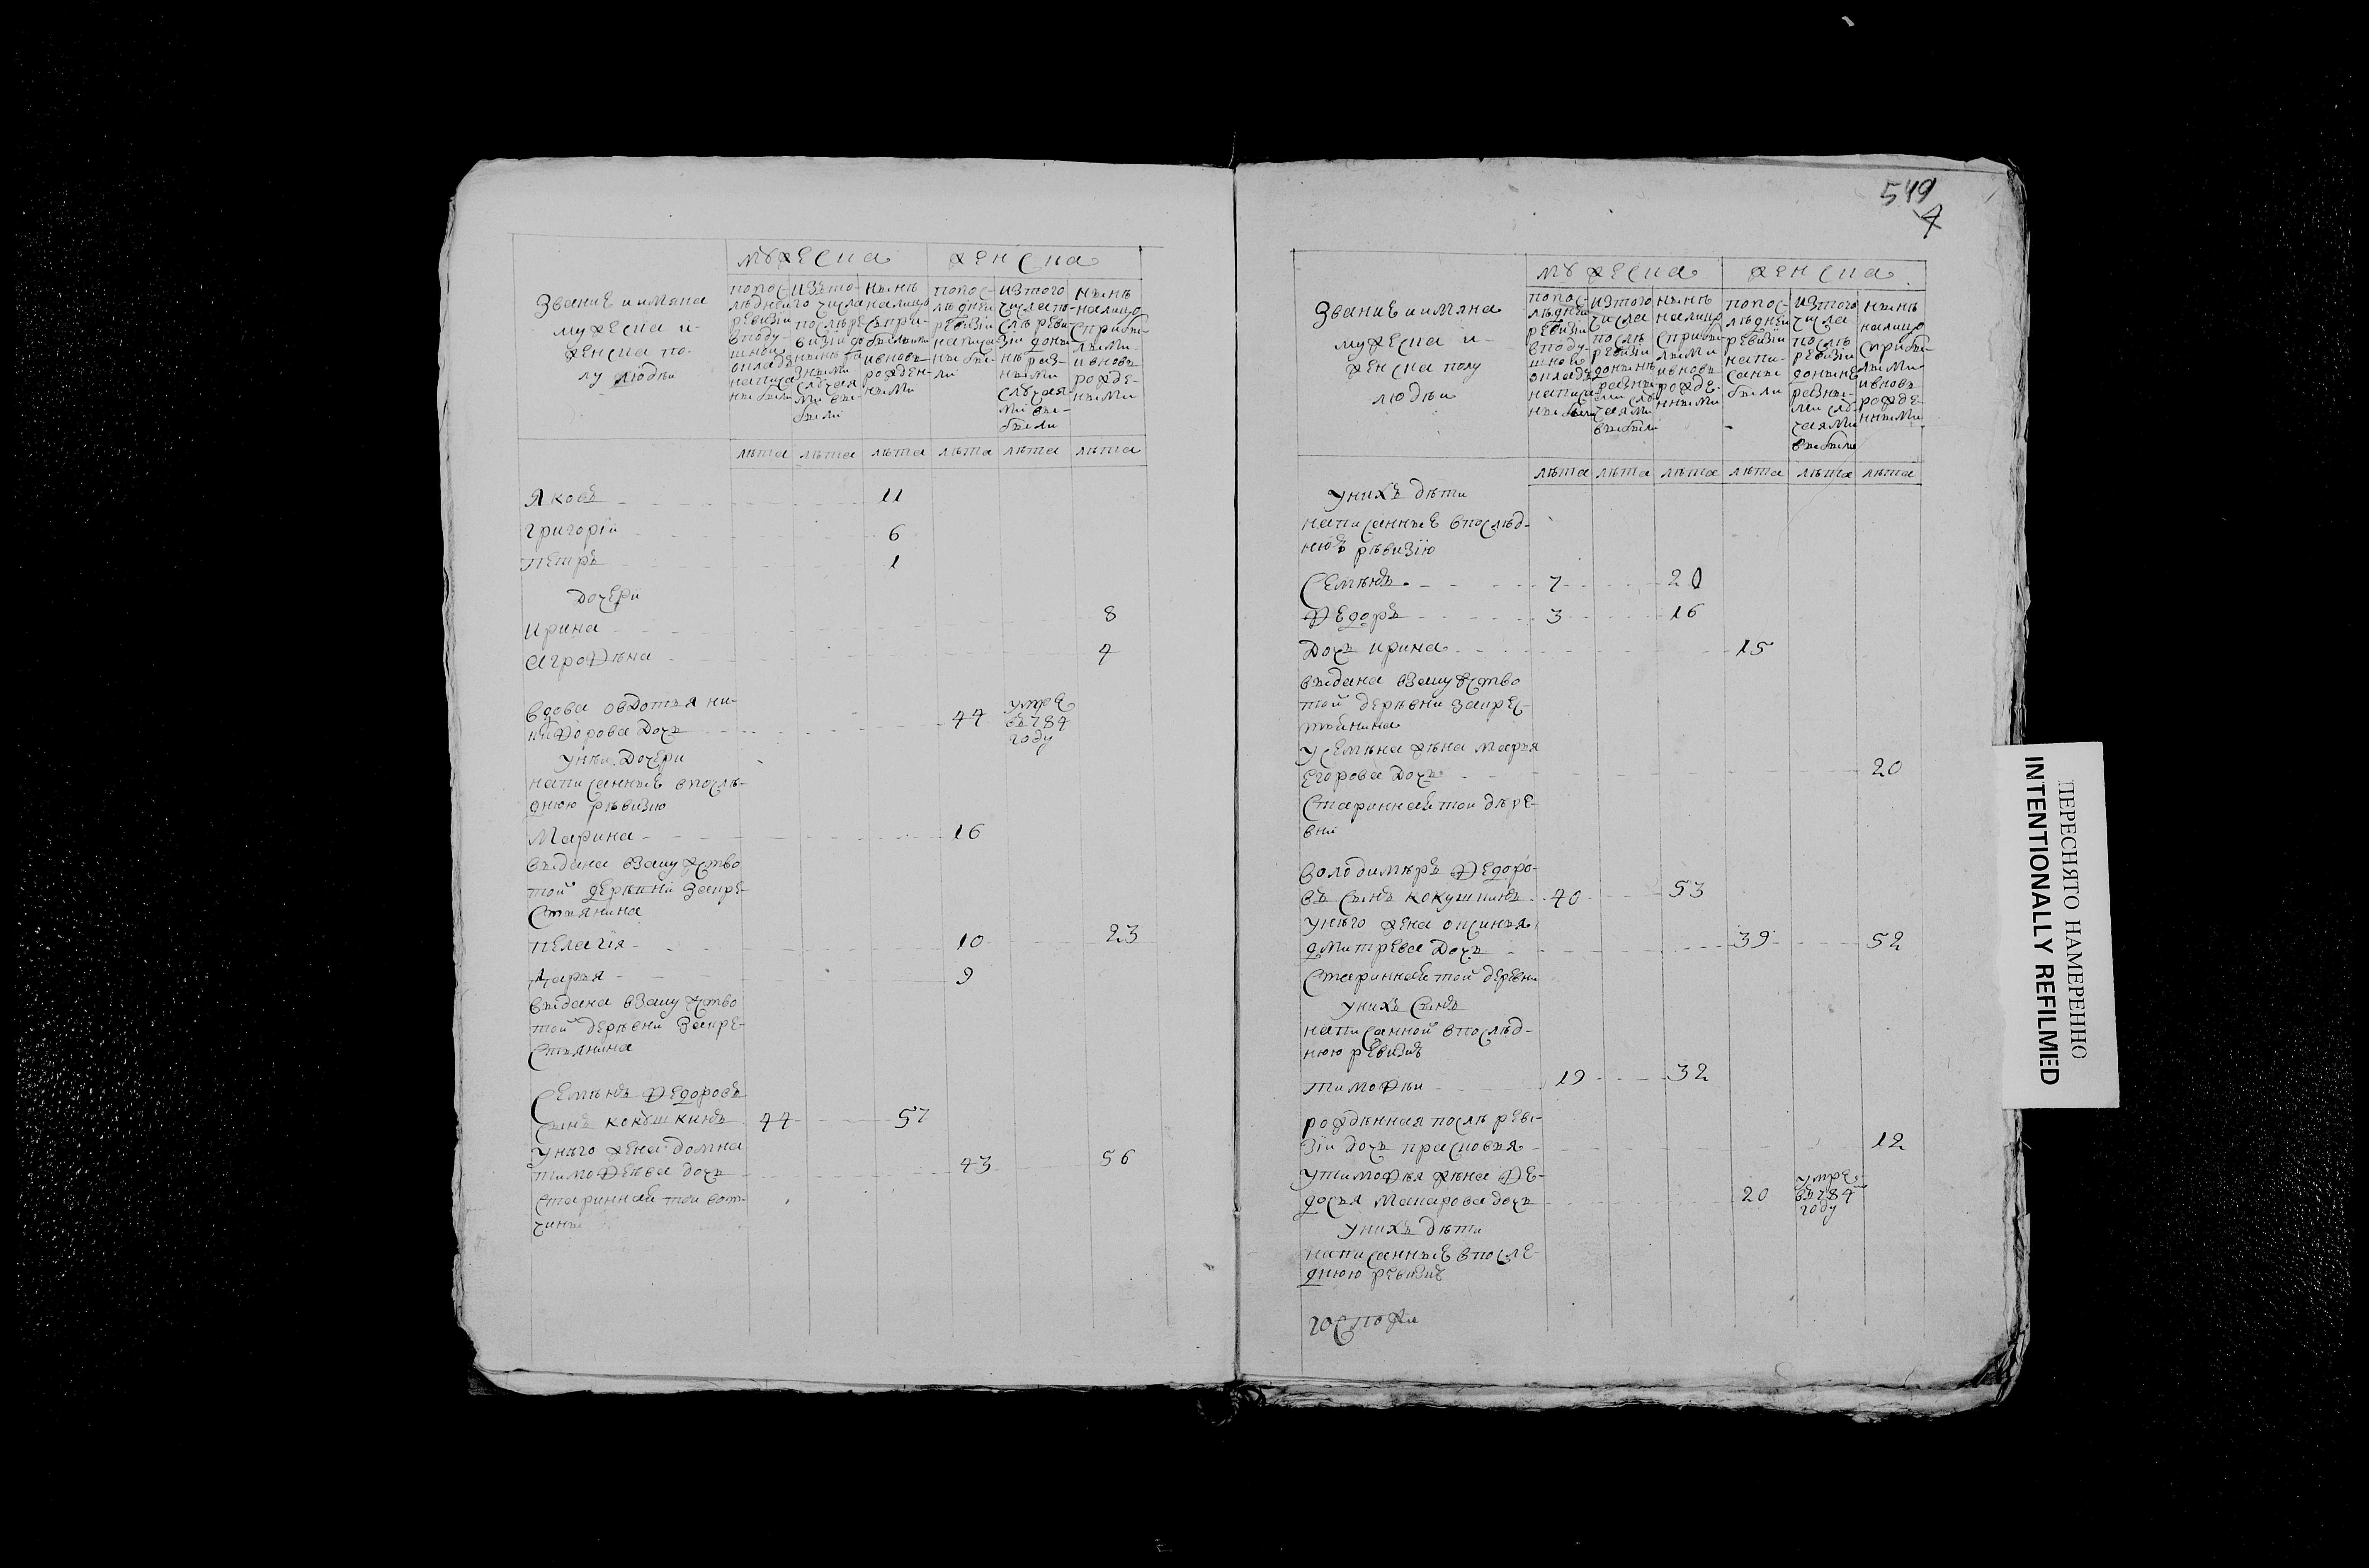 мужеска женска
Званиѣ и имяна
мужеска и-
женска по-
лу людѣи
попос-
лѣднеи
ревизiи
вподу-
шнои
окладъ
написа
ны были
изъто-
го числа
послѣ ре
визiи до
нынѣ ра
зными
случая
ми вы-
были
нынѣ
налицо
спри-
былыми
ивновь
рожден-
ными
попос-
лѣднеи
ревизiи
написа-
ны бы-
ли
изтого
числа по-
слѣ реви-
зiи доны
нѣ раз-
ными
случая-
ми вы-
были
нынѣ
налицо
сприбы-
лыми
ивновь
рожде-
ными
лѣта лѣта лѣта лѣта лѣта лѣта
Яковъ 11
Григорiи 6
Петръ 1
дочери
Ирина 8
Агрофѣна 4
вдова овдотья ни-
кифорова дочь 44 умре въ 784 году
унѣи дочери
написанныѣ впослѣ-
днюю рѣвизию
Марина 16
выдана взамужство
той дерѣвни закре-
стьянина
пелагiя 10 23
дарья 9
выдана взамужство
той дерѣвни закре-
стьянина
Семѣнъ Федоровъ
сынъ кокушкинъ 44 57
унѣго жена домна
тимофѣева дочь 43 56
стариннай тои вот-
чины
549
4
мужеска женска
Званиѣ и имяна
мужеска и-
женска полу
людѣи
попос-
лѣднеи
ревизiи
вподу-
шнои
окладъ
написа
ны были
изтого
числа
послѣ
ревизiи
донынѣ
разны
ми слу
чаями
выбыли
нынѣ
налицо
сприбы-
лыми
ивновь
рожде-
нными
попос-
лѣднеи
ревизiи
напи-
саны
были
изтого
числа
послѣ
ревизiи
донынѣ
разны-
ми слу-
чаями
выбыли
нынѣ
налицо
сприбы-
лыми
ивновь
рожде-
нными
лѣта лѣта лѣта лѣта лѣта лѣта
унихъ дѣти
написанныѣ впослѣд-
нюю рѣвизiю
Семѣнъ 7 20
Федоръ 3 16
Дочь ирина 15
выдана взамужство
той дерѣвни закрес-
тьянина
усемѣна жѣна марья
егорова дочь 20
стариннай тои дѣре-
вни
володимѣръ Федоро-
въ сынъ кокушкинъ 40 53
унѣго жена оксинья
дмитрева дочь 39 52
стариннай той деревни
унихъ сынъ
написанной впослѣд-
нюю ревизию
тимофѣи 19 32
рождѣнная послѣ реви-
зiи дочь прасковья 12
утимофѣя жѣна фе-
досья макарова дочь 20 умре въ 784 году
унихъ дѣти
написанныѣ впосле-
днюю ревизию
госпожи
ПЕРЕСНЯТО НАМЕРЕННО
INTENTIONALLY REFILMED